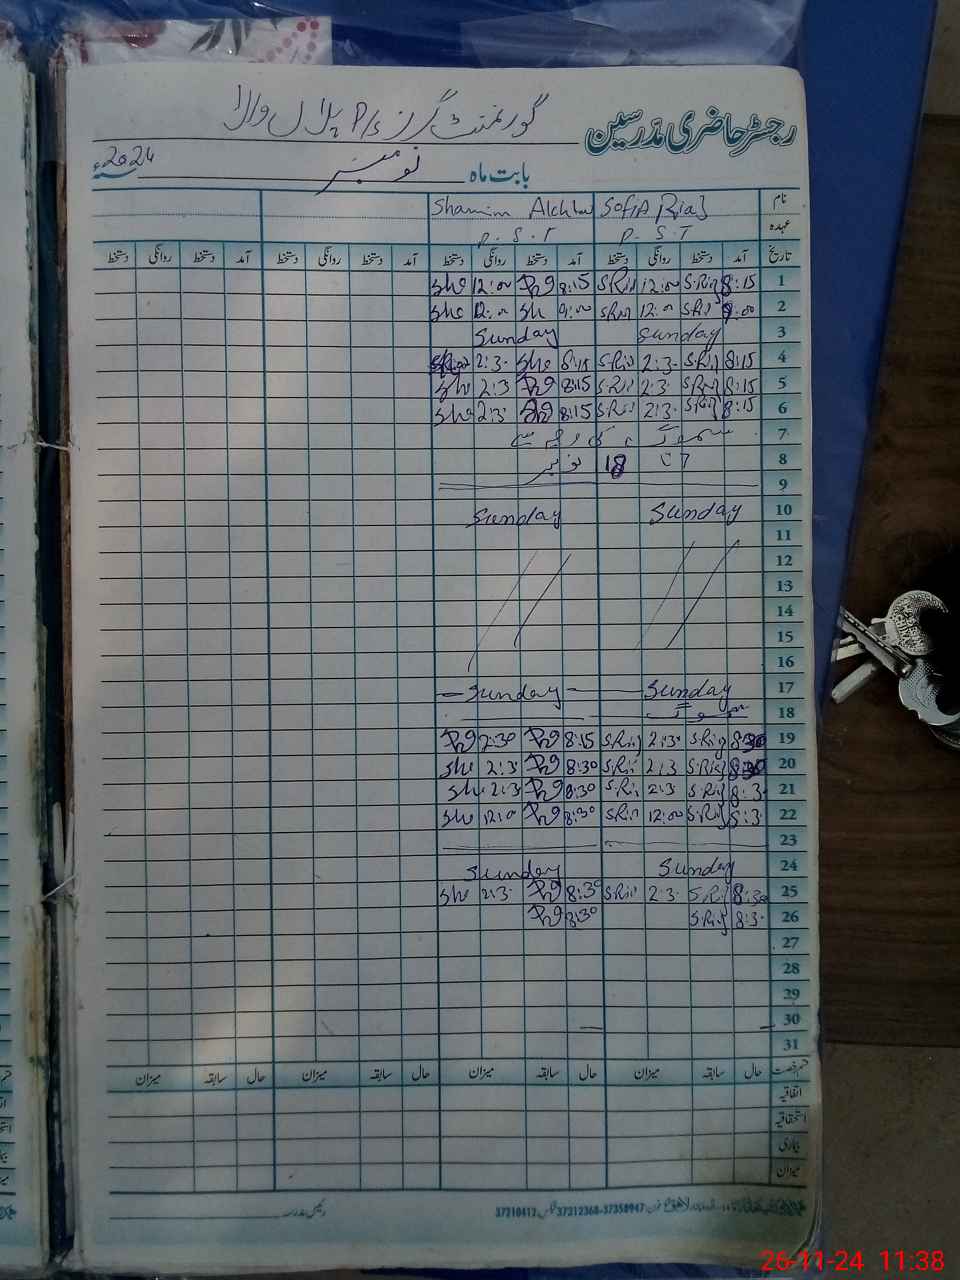 رجسٹر حاضری مدرسین گورنمنٹ گرلز P/s والا
بابت ماہ نومبر 2024ء
نام Sofia Riaz Shamim Akhtar
عہدہ P.S.T P.S.T
تاریخ آمد دستخط روانگی دستخط آمد دستخط روانگی دستخط آمد دستخط روانگی دستخط آمد دستخط روانگی دستخط
1 8:15 S.Riaz 12:00 S.Riaz 8:15 12:00 She
2 9:00 S.Riaz 12:00 S.Riaz 9:00 Sh 12:00 She
3 Sunday Sunday
4 8:15 S.Riaz 2:30 S.Riaz 8:15 She 2:30
5 8:15 S.Riaz 2:3 S.Riaz 8:15 2:3 She
6 8:15 S.Riaz 2:3 S.Riaz 8:15 2:3 She
7 سموگ کی وجہ سے
8 7 تا 18 نومبر
9
10 Sunday Sunday
11
12
13
14
15
16
17 Sunday Sunday
18 سموگ
19 8:30 S.Riaz 2:30 S.Riaz 8:15 2:30
20 8:30 S.Riaz 2:3 S.Riaz 8:30 2:3 She
21 8:3 S.Riaz 2:3 S.Riaz 8:30 2:3 She
22 8:3 S.Riaz 12:00 S.Riaz 8:30 12:0 She
23
24 Sunday Sunday
25 8:30 S.Riaz 2:3 S.Riaz 8:30 2:3 She
26 8:3 S.Riaz 8:30
27
28
29
30
31
قسم رخصت حال سابقہ میزان حال سابقہ میزان حال سابقہ میزان حال سابقہ میزان
اتفاقیہ
استحقاقیہ
بیماری
میزان
فون 37312368-37358947 فیکس 37310412
رئیس مدرسہ
26-11-24 11:38